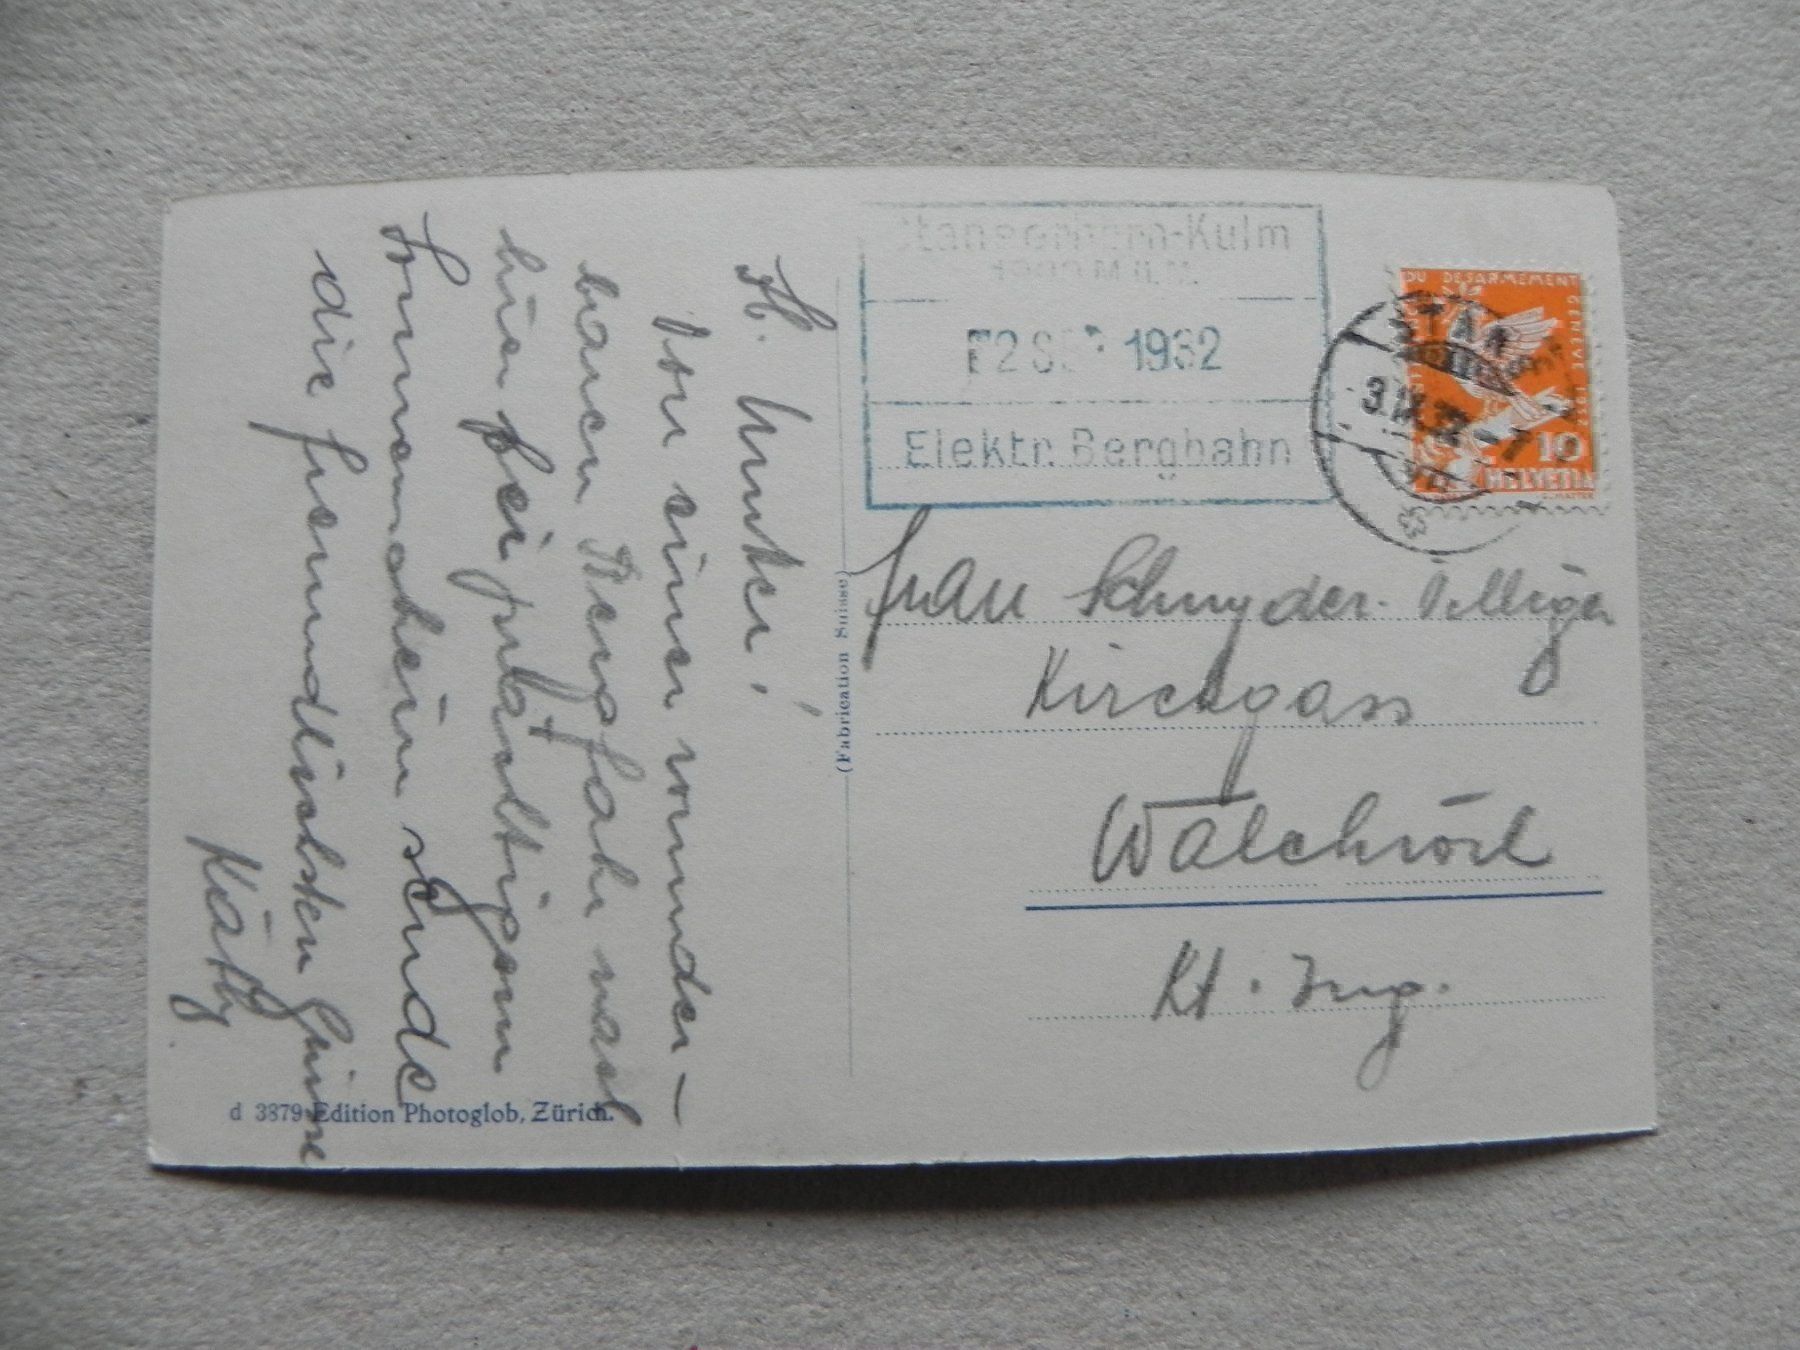 St. Mutter!
Von einer wunder-
baren Bergfahrt nach
hier bei prächtigem
Sonnenschein sende
die freundlichsten Grüsse
Käthy
d 3879 Edition Photoglob, Zürich.
(Fabrication Suisse)
Stanserhorn-Kulm
1900 M ü. M.
2 SEP 1932
Elektr. Bergbahn
DU DESARMEMENT
GENEVE 1932
10
HELVETIA
STANS
3.IX.32
Frau Schnyder-Villiger
Kirchgass
Walchwil
Kt. Zug.